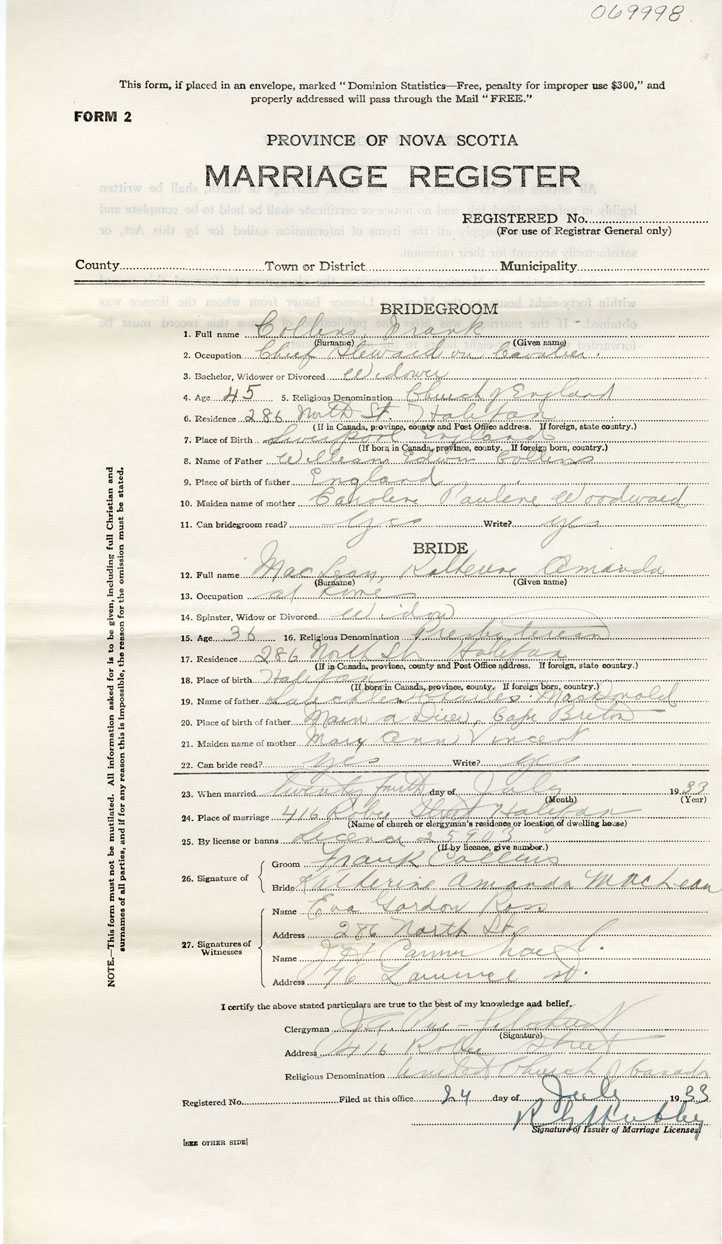 069998
This form, if placed in an envelope, marked "Dominion Statistics—Free, penalty for improper use $300," and
properly addressed will pass through the Mail "FREE."
FORM 2
PROVINCE OF NOVA SCOTIA
MARRIAGE REGISTER
REGISTERED No.
(For use of Registrar General only)
County Town or District Municipality
BRIDEGROOM
1. Full name Collins, Frank
(Surname) (Given name)
2. Occupation Chief Steward on Cavalier.
3. Bachelor, Widower or Divorced Widower
4. Age 45 5. Religious Denomination Church of England
6. Residence 286 North St. Halifax
(If in Canada, province, county and Post Office address. If foreign, state country.)
7. Place of Birth Liverpool England
(If born in Canada, province, county. If foreign born, country.)
8. Name of Father William Edwin Collins
9. Place of birth of father England
10. Maiden name of mother Caroline Paulene Woodward
11. Can bridegroom read? Yes Write? yes
BRIDE
12. Full name MacLean, Katherine Amanda
(Surname) (Given name)
13. Occupation at home
14. Spinster, Widow or Divorced Widow
15. Age 36 16. Religious Denomination Presbyterian
17. Residence 286 North St. Halifax
(If in Canada, province, county and Post Office address. If foreign, state country.)
18. Place of birth Halifax
(If born in Canada, province, county. If foreign born, country.)
19. Name of father Charles MacDonald
20. Place of birth of father Main a Dieu, Cape Breton
21. Maiden name of mother Mary Ann Vincent
22. Can bride read? yes Write? yes
23. When married twenty fourth day of July 1933
(Month) (Year)
24. Place of marriage 416 Street Halifax
(Name of church or clergyman's residence or location of dwelling house)
25. By license or banns Licence 25903
(If by licence, give number.)
26. Signature of Groom Frank Collins
Bride Katherine Amanda MacLean
27. Signatures of Witnesses
Name Eva Gordon Ross
Address 286 North St.
Name J H
Address 76 St.
I certify the above stated particulars are true to the best of my knowledge and belief.
Clergyman
(Signature)
Address 416 Street
Religious Denomination United Church of Canada
Registered No. Filed at this office 24 day of July 1933
Signature of Issuer of Marriage Licenses
[SEE OTHER SIDE]
NOTE.—This form must not be mutilated. All information asked for is to be given, including full Christian and
surnames of all parties, and if for any reason this is impossible, the reason for the omission must be stated.